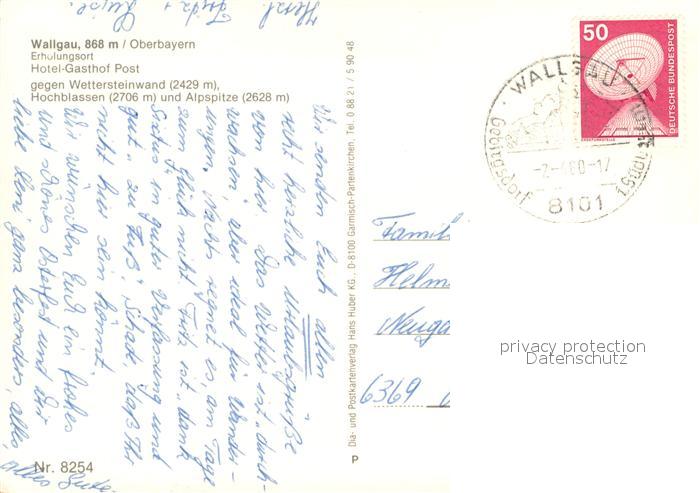 Wallgau, 868 m / Oberbayern
Erholungsort
Hotel-Gasthof Post
gegen Wettersteinwand (2429 m),
Hochblassen (2706 m) und Alpspitze (2628 m)
Wir senden Euch allen
recht herzliche Urlaubsgrüße
von hier. Das Wetter ist "durch-
wachsen", aber ideal für Wander-
ungen. Nachts regnet es, am Tage
zum Glück nicht. Fritz ist, dank
Siches in guter Verfassung und
gut "zu Fuß". Schade, daß Ihr
nicht hier sein könnt.
Wir wünschen Euch ein frohes
und schönes Osterfest und Dir
liebe Leni ganz besonders, alles,
alles Gute.
Herzl. Fritz +
Luise.
Nr. 8254
Dia- und Postkartenverlag Hans Huber KG., D-8100 Garmisch-Partenkirchen, Tel. 0 88 21 / 5 90 48
P
50
DEUTSCHE BUNDESPOST
ERDEFUNKSTELLE
WALLGAU
Gebirgsdorf
-2-4.80-17
8101
Famil
Helm
Neuga
6369
privacy protection
Datenschutz